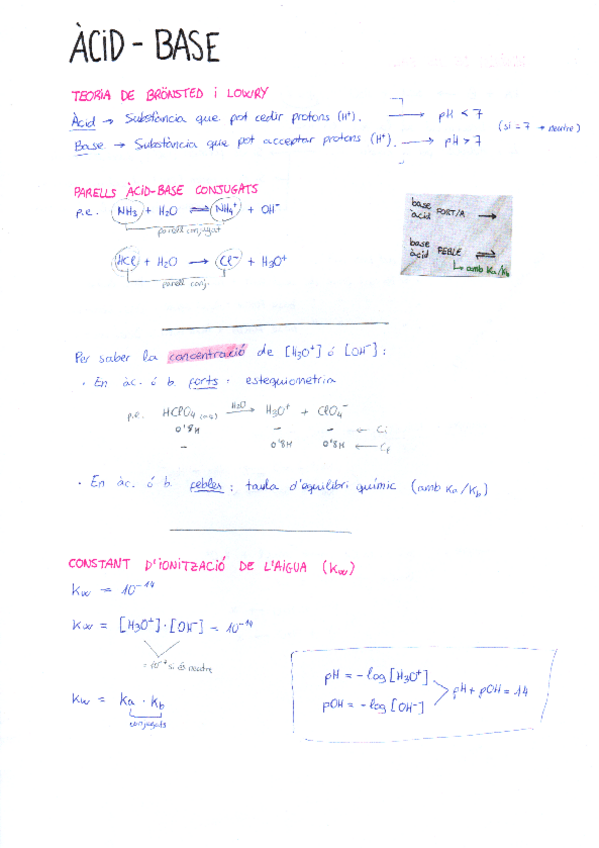 ÀCID - BASE
TEORIA DE BRÖNSTED i LOWRY
Àcid → Substància que pot cedir protons (H⁺). → pH < 7
(si = 7 → neutre)
Base → Substància que pot acceptar protons (H⁺). → pH > 7
PARELLS ÀCID-BASE CONJUGATS
p.e. NH₃ + H₂O ⇌ NH₄⁺ + OH⁻
parell conjugat
HCl + H₂O → Cl⁻ + H₃O⁺
parell conj.
base
àcid FORT/A →
base
àcid FEBLE ⇌
↳ amb Ka/Kb
Per saber la concentració de [H₃O⁺] ó [OH⁻] :
· En àc. ó b. forts : estequiometria
p.e. HClO₄ (aq) H₂O → H₃O⁺ + ClO₄⁻
0'8M - - ← Ci
- 0'8M 0'8M ← Cf
· En àc. ó b. febles : taula d'equilibri químic (amb Ka/Kb)
CONSTANT D'IONITZACIÓ DE L'AIGUA (Kw)
Kw = 10⁻¹⁴
Kw = [H₃O⁺]·[OH⁻] = 10⁻¹⁴
= 10⁻⁷ si és neutre
Kw = Ka · Kb
conjugats
pH = -log [H₃O⁺]
pH + pOH = 14
pOH = -log [OH⁻]